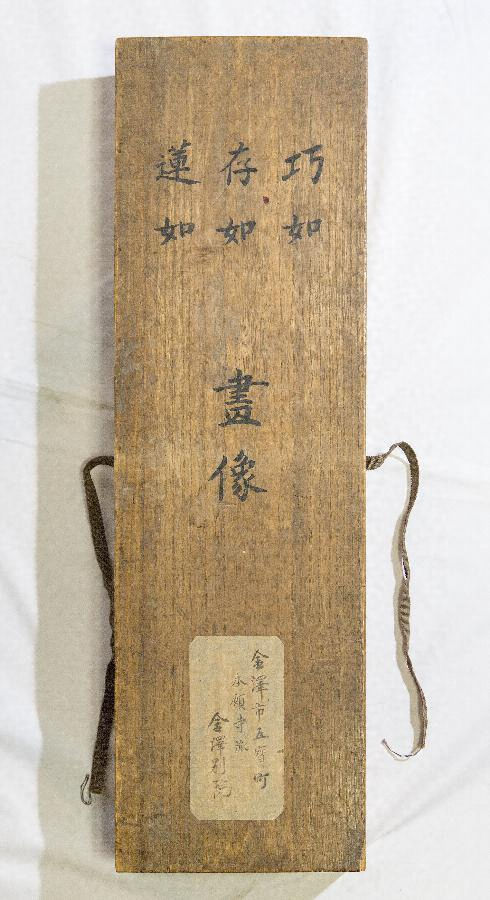 巧如
存如
蓮如
畫像
金澤市五寳町
本願寺派
金澤別院